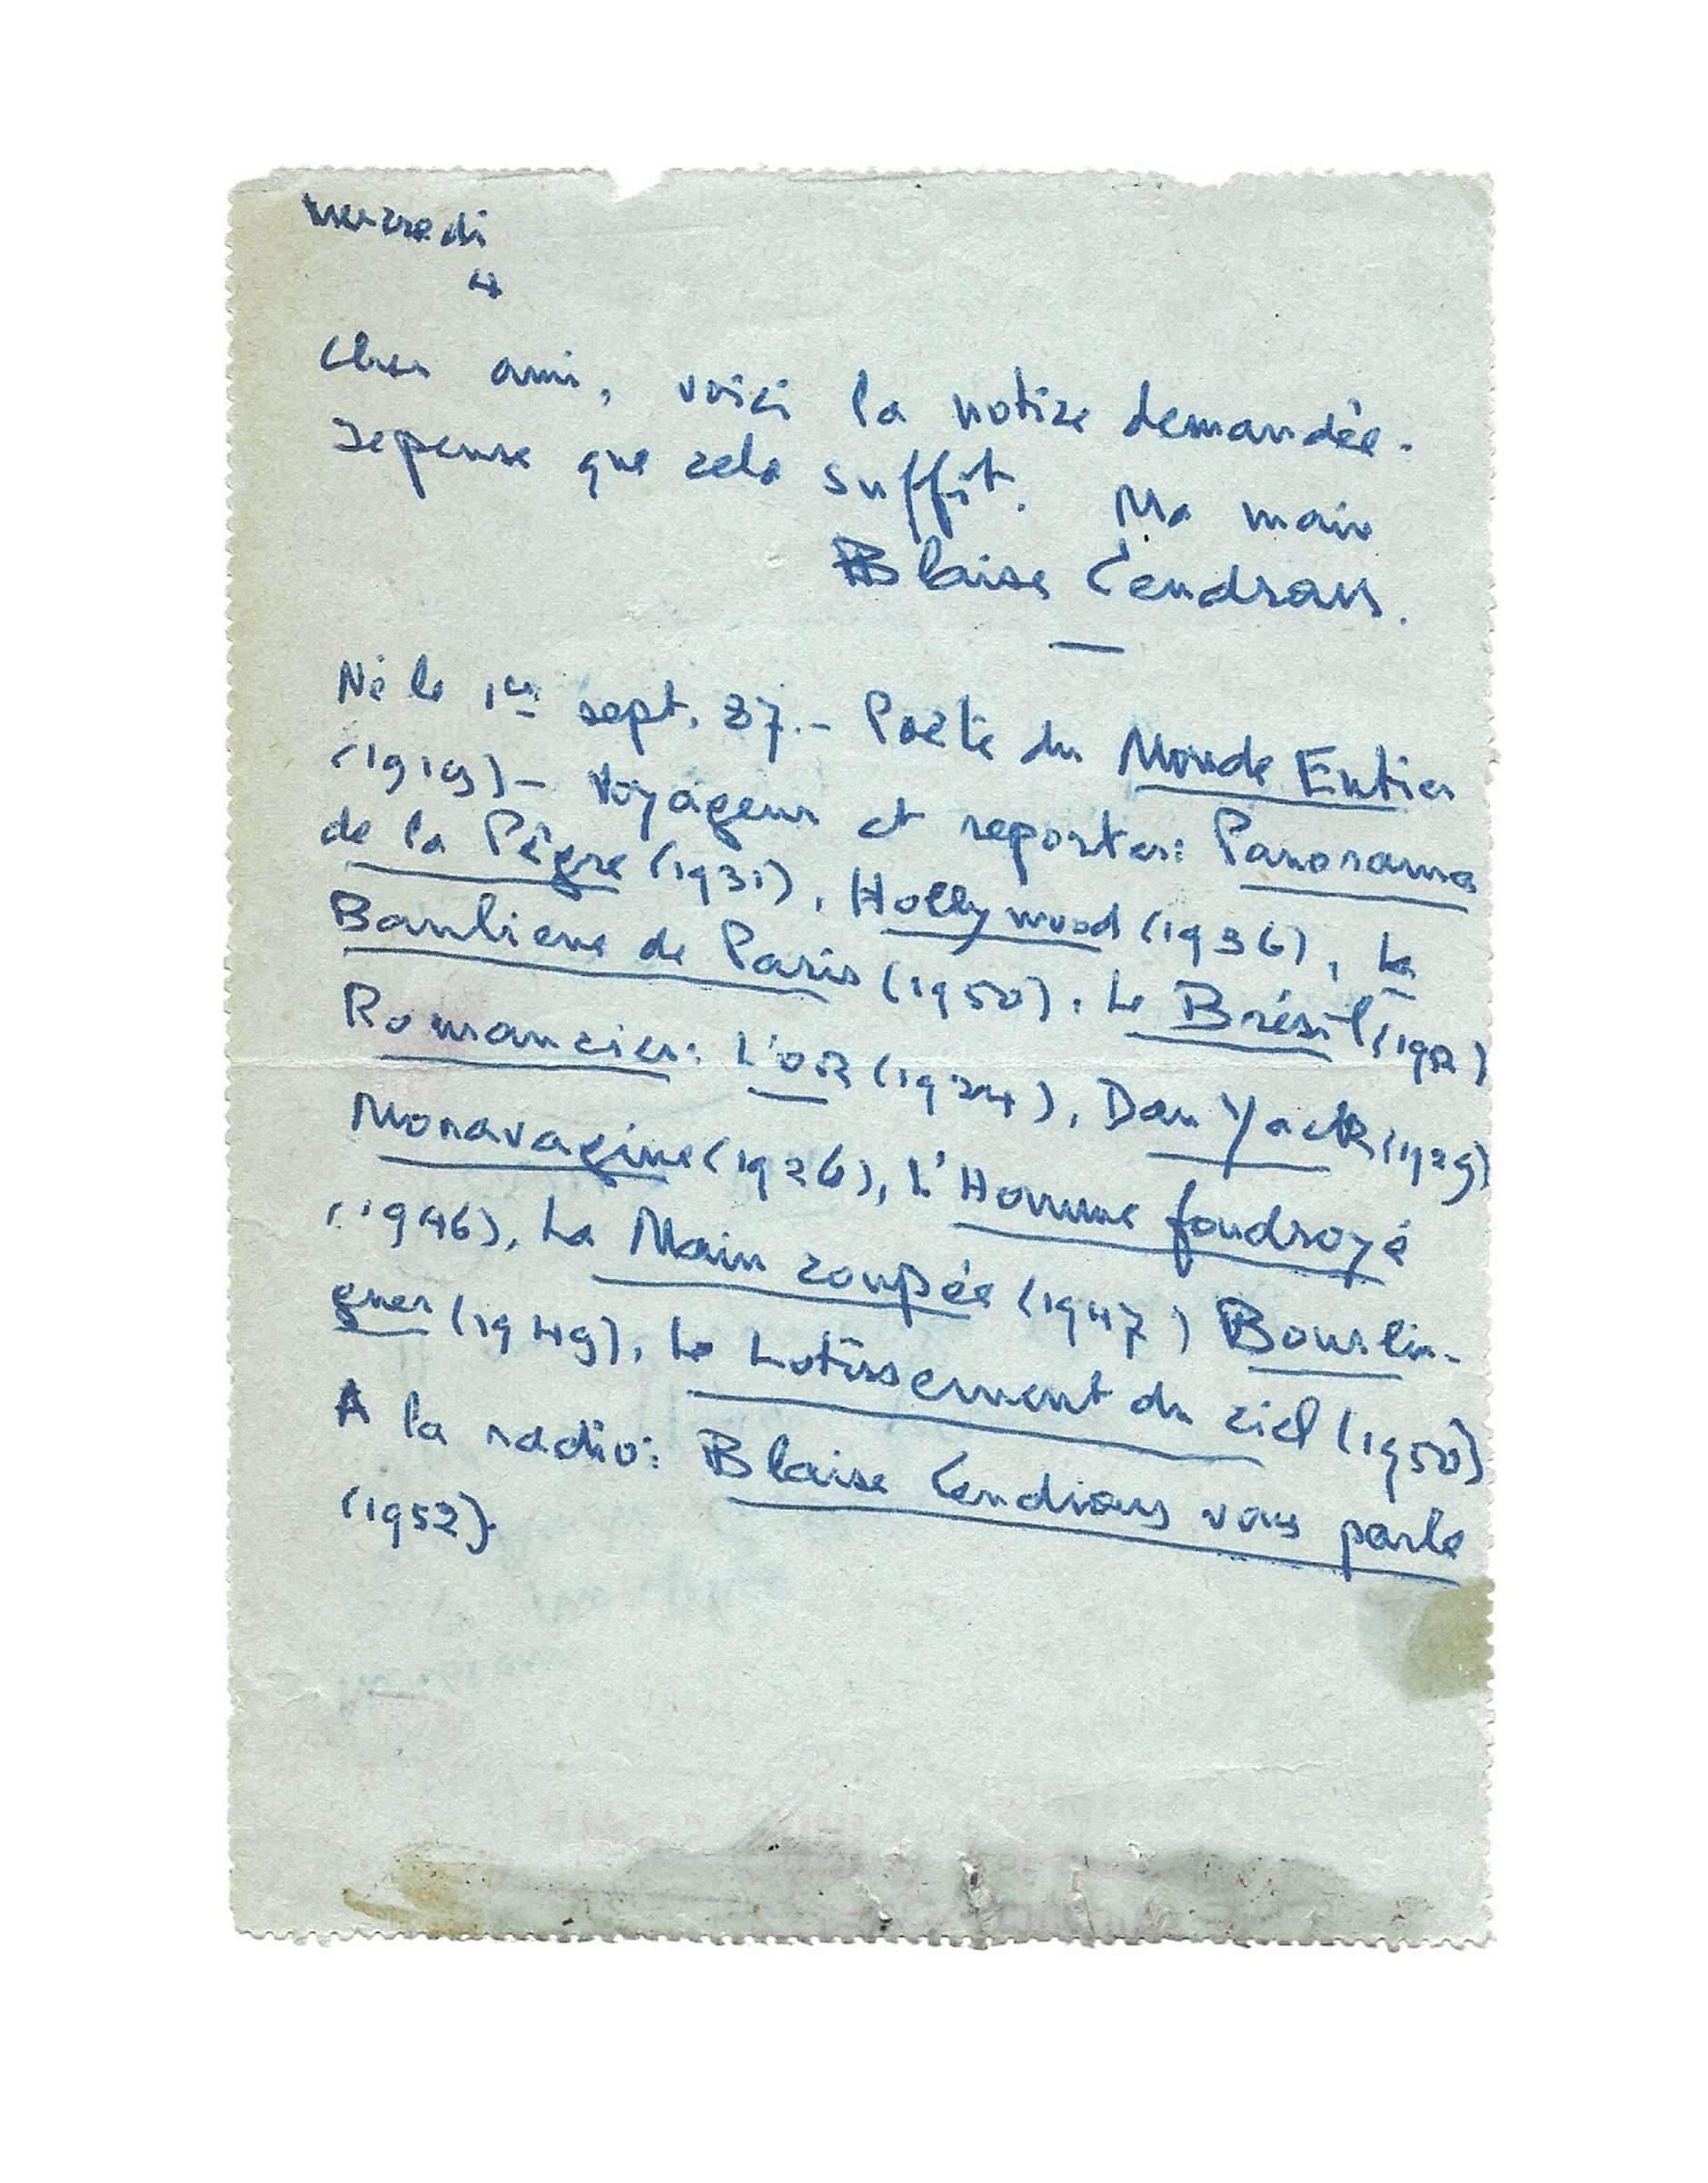 Mercredi
4
Cher ami, voici la notice demandée.
Je pense que cela suffit. Ma main
Blaise Cendrars.
Né le 1er sept. 87.- Poète du Monde Entier
(1919)- Voyageur et reporter: Panorama
de la Pègre (1931), Hollywood (1936), La
Banlieue de Paris (1950). Le Brésil (1952)
Romancier: L'OR (1924), Dan Yack (1929)
Moravagine (1926), L'Homme foudroyé
(1946), La Main coupée (1947) Bourlin-
guer (1949), Le Lotissement du ciel (1950)
A la radio: Blaise Cendrars vous parle
(1952).